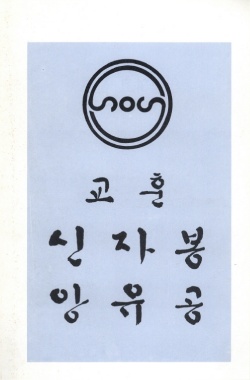 교훈
신앙
자유
봉공